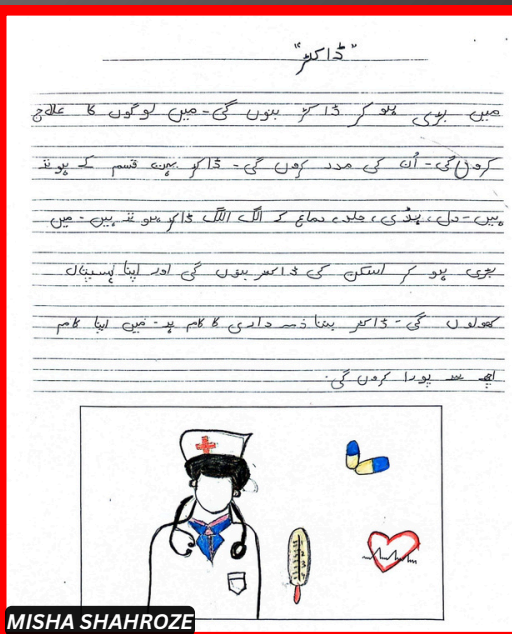 "ڈاکٹر"
میں بڑی ہو کر ڈاکٹر بنوں گی۔ میں لوگوں کا علاج
کروں گی۔ اُن کی مدد کروں گی۔ ڈاکٹر بہت قسم کے ہوتے
ہیں۔ دل، ہڈی، جلد، دماغ کے الگ الگ ڈاکٹر ہوتے ہیں۔ میں
بڑی ہو کر اسکن کی ڈاکٹر بنوں گی اور اپنا ہسپتال
کھولوں گی۔ ڈاکٹر بننا ذمہ داری کا کام ہے۔ میں اپنا کام
اچھے سے پورا کروں گی۔
MISHA SHAHROZE